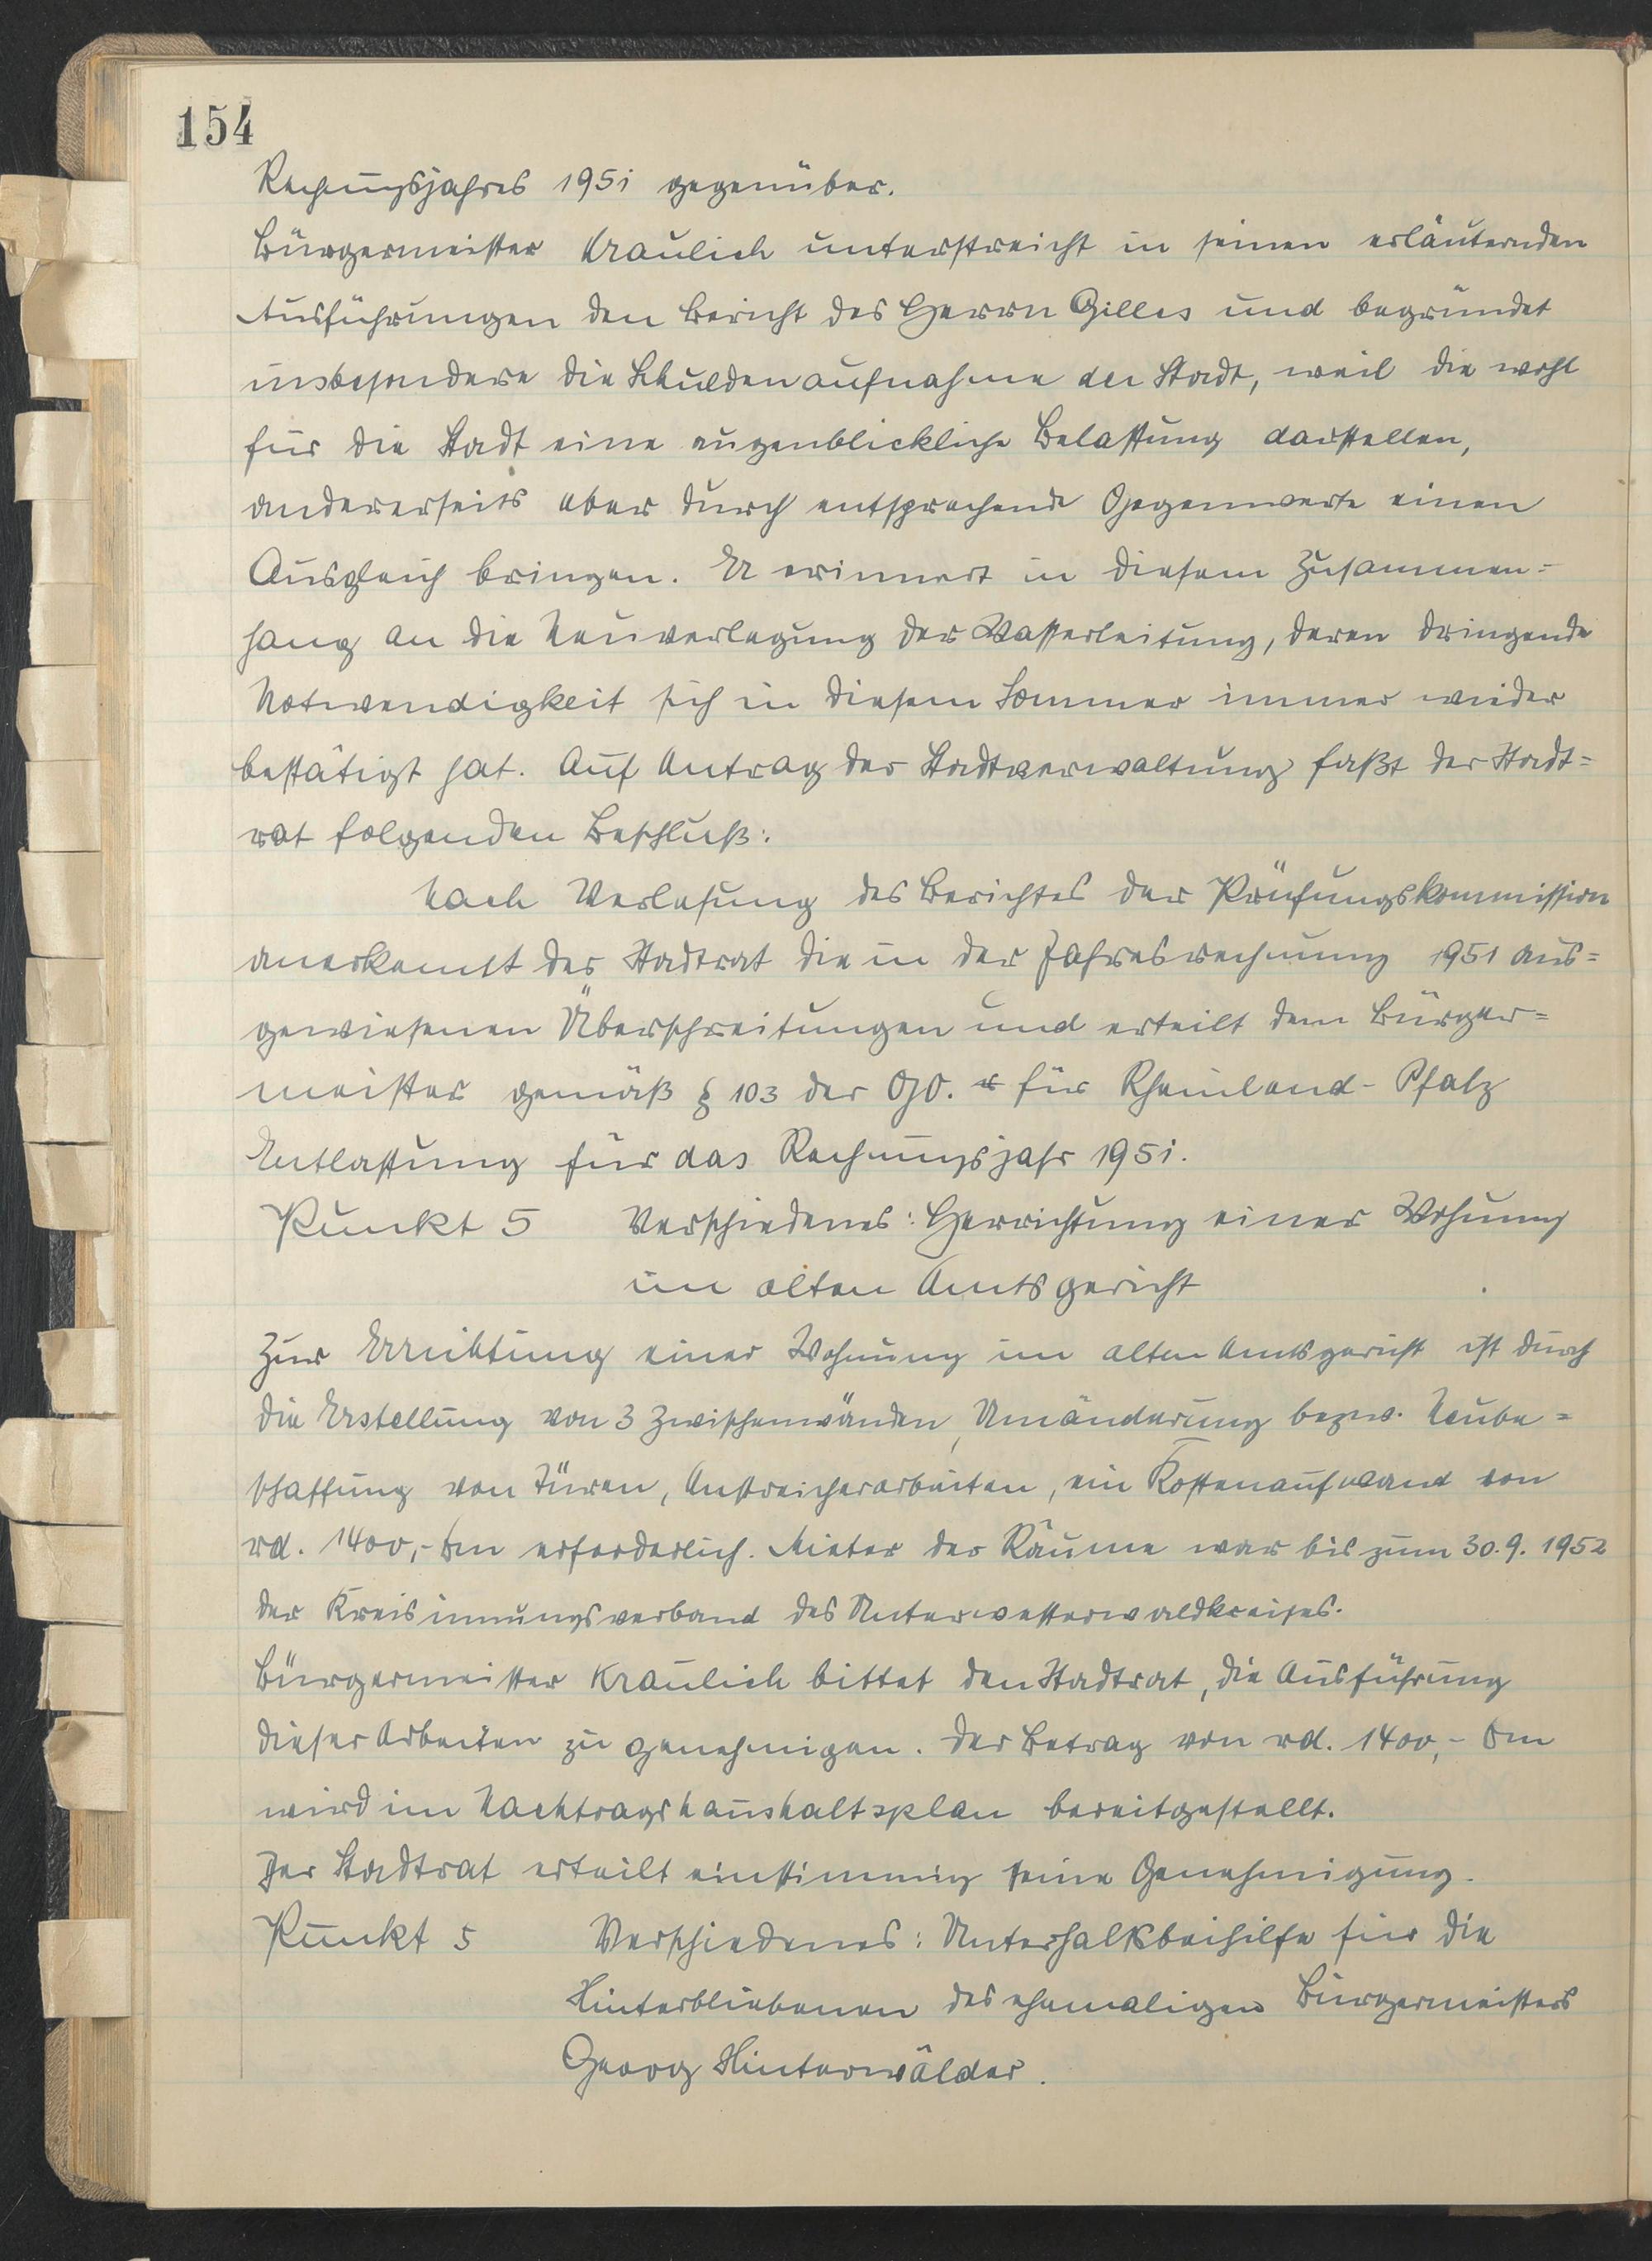 154
Rechnungsjahres 1951 gegenüber.
Bürgermeister Kraulich unterstreicht in seinen erläuternden
Ausführungen den Bericht des Herrn Gilles und begründet
insbesondere die Schuldenaufnahme der Stadt, weil die wohl
für die Stadt eine augenblickliche Belastung darstellen,
andererseits aber durch entsprechende Gegenwerte einen
Ausgleich bringen. Er erinnert in diesem Zusammen=
hang an die Neuverlegung der Wasserleitung, deren dringende
Notwendigkeit sich in diesem Sommer immer wieder
bestätigt hat. Auf Antrag der Stadtverwaltung faßt der Stadt=
rat folgenden Beschluß:
Nach Verlesung des Berichtes der Prüfungskommission
anerkennt der Stadtrat die in der Jahresrechnung 1951 aus=
gewiesenen Überschreitungen und erteilt dem Bürger=
meister gemäß § 103 der GO. für Rheinland-Pfalz
Entlastung für das Rechnungsjahr 1951.
Punkt 5 Verschiedenes: Herrichtung einer Wohnung
im alten Amtsgericht
Zur Errichtung einer Wohnung im alten Amtsgericht ist durch
die Erstellung von 3 Zwischenwänden, Umänderung bezw. Neube=
schaffung von Türen, Anstreicherarbeiten, ein Kostenaufwand von
rd. 1400,- DM erforderlich. Mieter der Räume war bis zum 30.9.1952
der Kreisinnungsverband des Unterwesterwaldkreises.
Bürgermeister Kraulich bittet den Stadtrat, die Ausführung
dieser Arbeiten zu genehmigen. Der Betrag von rd. 1400,- DM
wird im Nachtragshaushaltsplan bereitgestellt.
Der Stadtrat erteilt einstimmig seine Genehmigung.
Punkt 5 Verschiedenes: Unterhaltsbeihilfe für die
Hinterbliebenen des ehemaligen Bürgermeisters
Georg Hinterwälder.